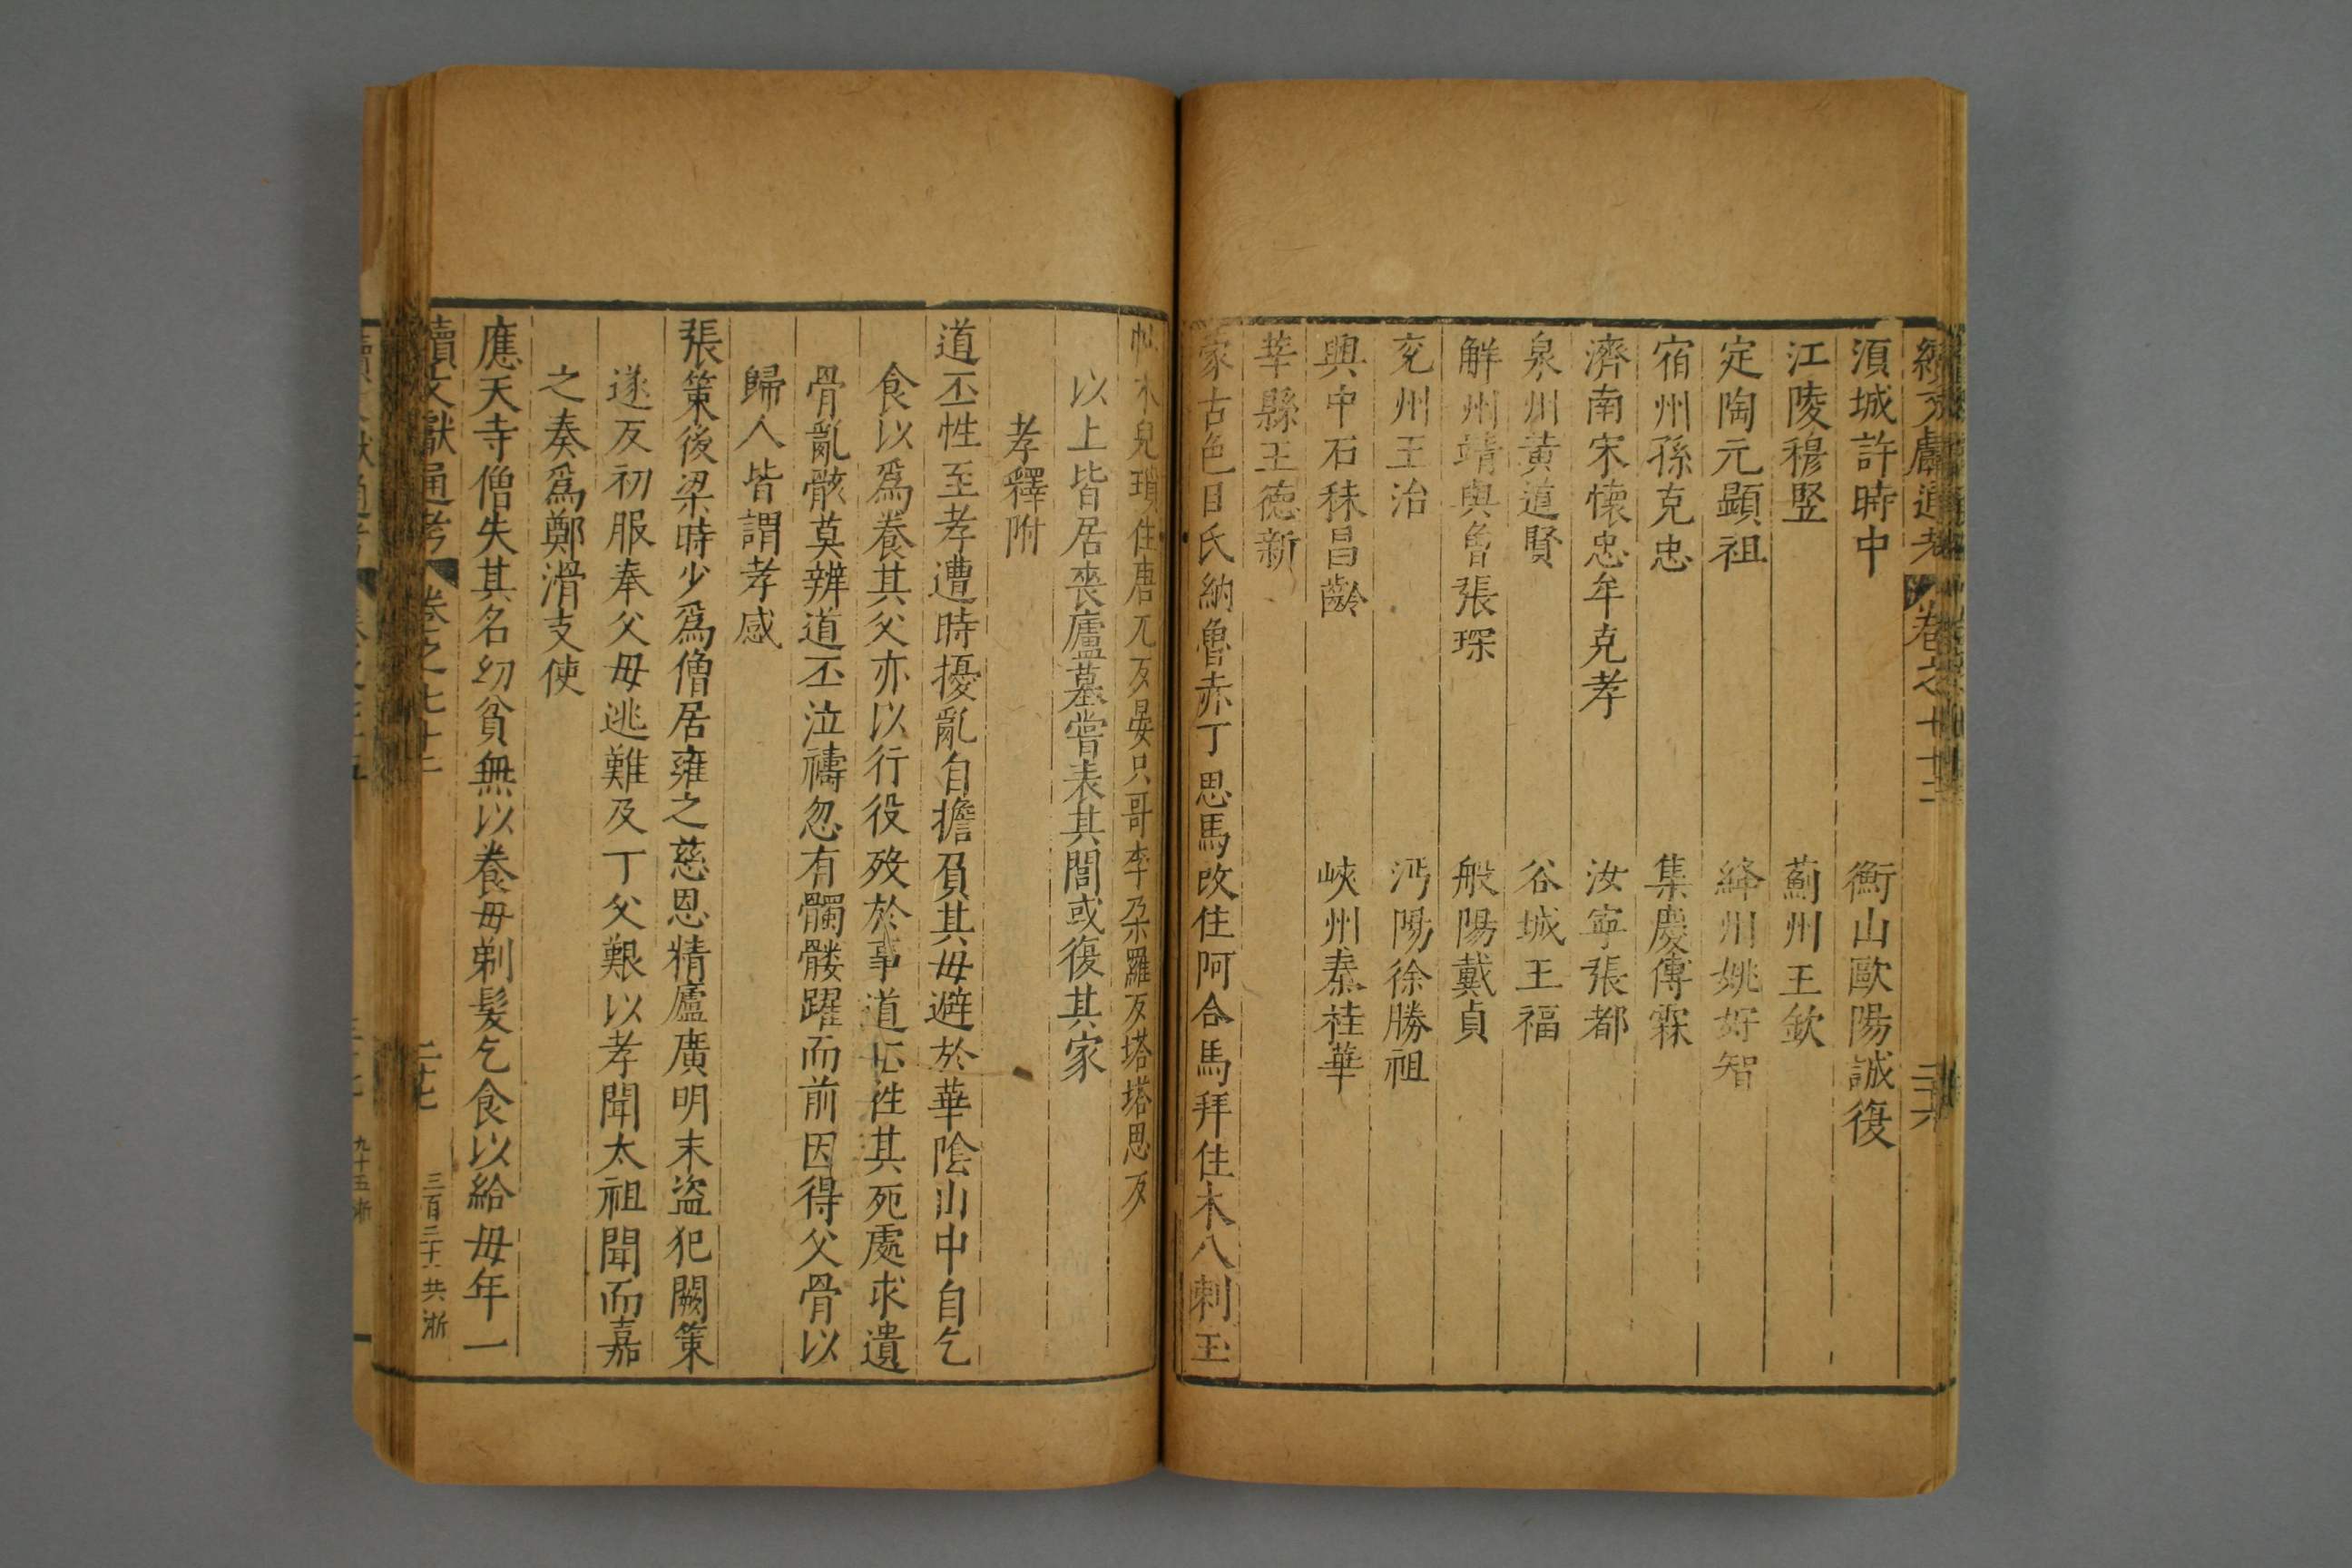 續文獻通考 卷之七十二 二十六
湏城許時中 衡山歐陽誠復
江陵穆堅 薊州王欽
定陶元顕祖 絳州姚好智
宿州孫克忠 集慶傅霖
濟南宋懷忠牟克孝 汝寧張都
泉州黄道賢 谷城王福
解州靖與曾張琛 般陽戴貞
兖州王治 沔陽徐勝祖
興中石秣昌齡 峽州秦桂華
莘縣王德新
蒙古色目氏納魯赤丁思馬改住阿合馬拜住木八剌玉
木兒瑣住唐兀歹晏只哥李朶羅歹塔塔思歹
以上皆居丧廬墓嘗表其閭或復其家
孝釋附
道丕性至孝遭時擾亂自擔負其毋避於華隂山中自乞
食以爲養其父亦以行役歿於事道丕徃其死處求遺
骨亂骸莫辨道丕泣禱忽有髑髏躍而前因得父骨以
歸人皆謂孝感
張策後梁時少爲僧居雍之慈恩精廬廣明末盗犯闕策
遂反初服奉父毋逃難及丁父艱以孝聞太祖聞而嘉
之奏爲鄭滑支使
應天寺僧失其名幼貧無以養毋剃髮乞食以給毋年一
續文獻通考 卷之七十二 二十七 三百三十 共浙
九十五 浙